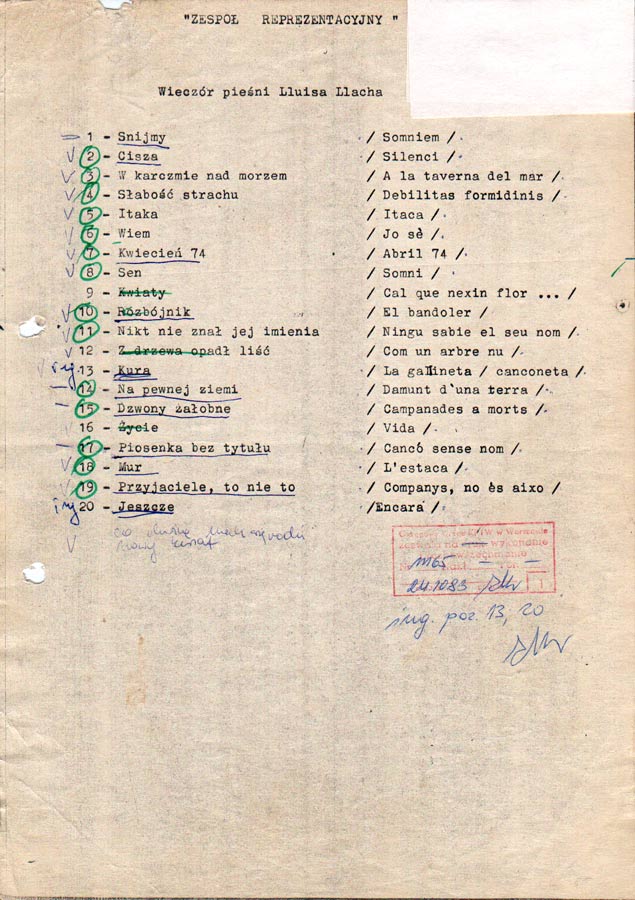 "ZESPOŁ REPREZENTACYJNY "
Wieczór pieśni Lluisa Llacha
1 - Snijmy / Somniem /
2 - Cisza / Silenci /
3 - W karczmie nad morzem / A la taverna del mar /
4 - Słabość strachu / Debilitas formidinis /
5 - Itaka / Itaca /
6 - Wiem / Jo sè /
7 - Kwiecień 74 / Abril 74 /
8 - Sen / Somni /
9 - Kwiaty / Cal que nexin flor ... /
10 - Rozbójnik / El bandoler /
11 - Nikt nie znał jej imienia / Ningu sabie el seu nom /
12 - Z drzewa opadł liść / Com un arbre nu /
ing. 13 - Kura / La gallineta / canconeta /
14 - Na pewnej ziemi / Damunt d'una terra /
15 - Dzwony żałobne / Campanades a morts /
16 - Życie / Vida /
17 - Piosenka bez tytułu / Cancó sense nom /
18 - Mur / L'estaca /
19 - Przyjaciele, to nie to / Companys, no ès aixo /
ing 20 - Jeszcze /Encarà /
w Warszawie
wykonanie
24.10.83
ing. poz. 13, 20